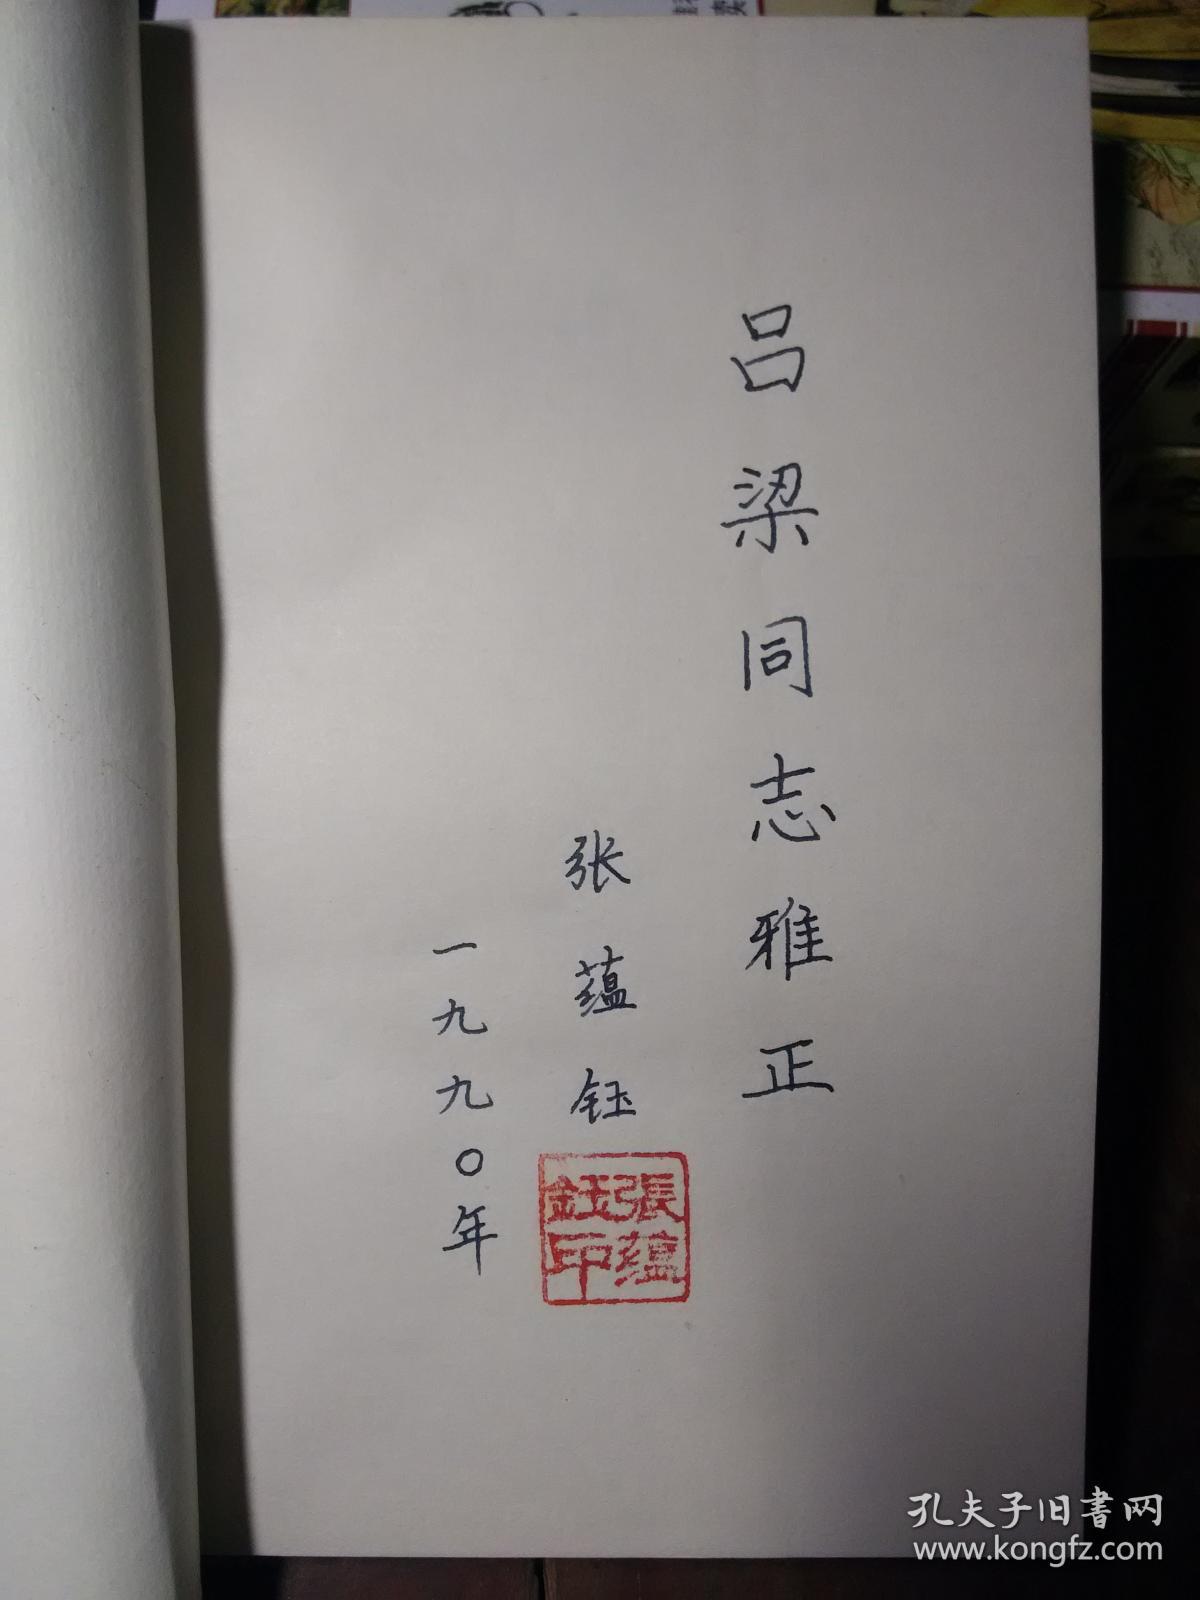 吕梁同志雅正
张蕴钰
一九九〇年
張蕴
鈺印
孔夫子旧書网
www.kongfz.com